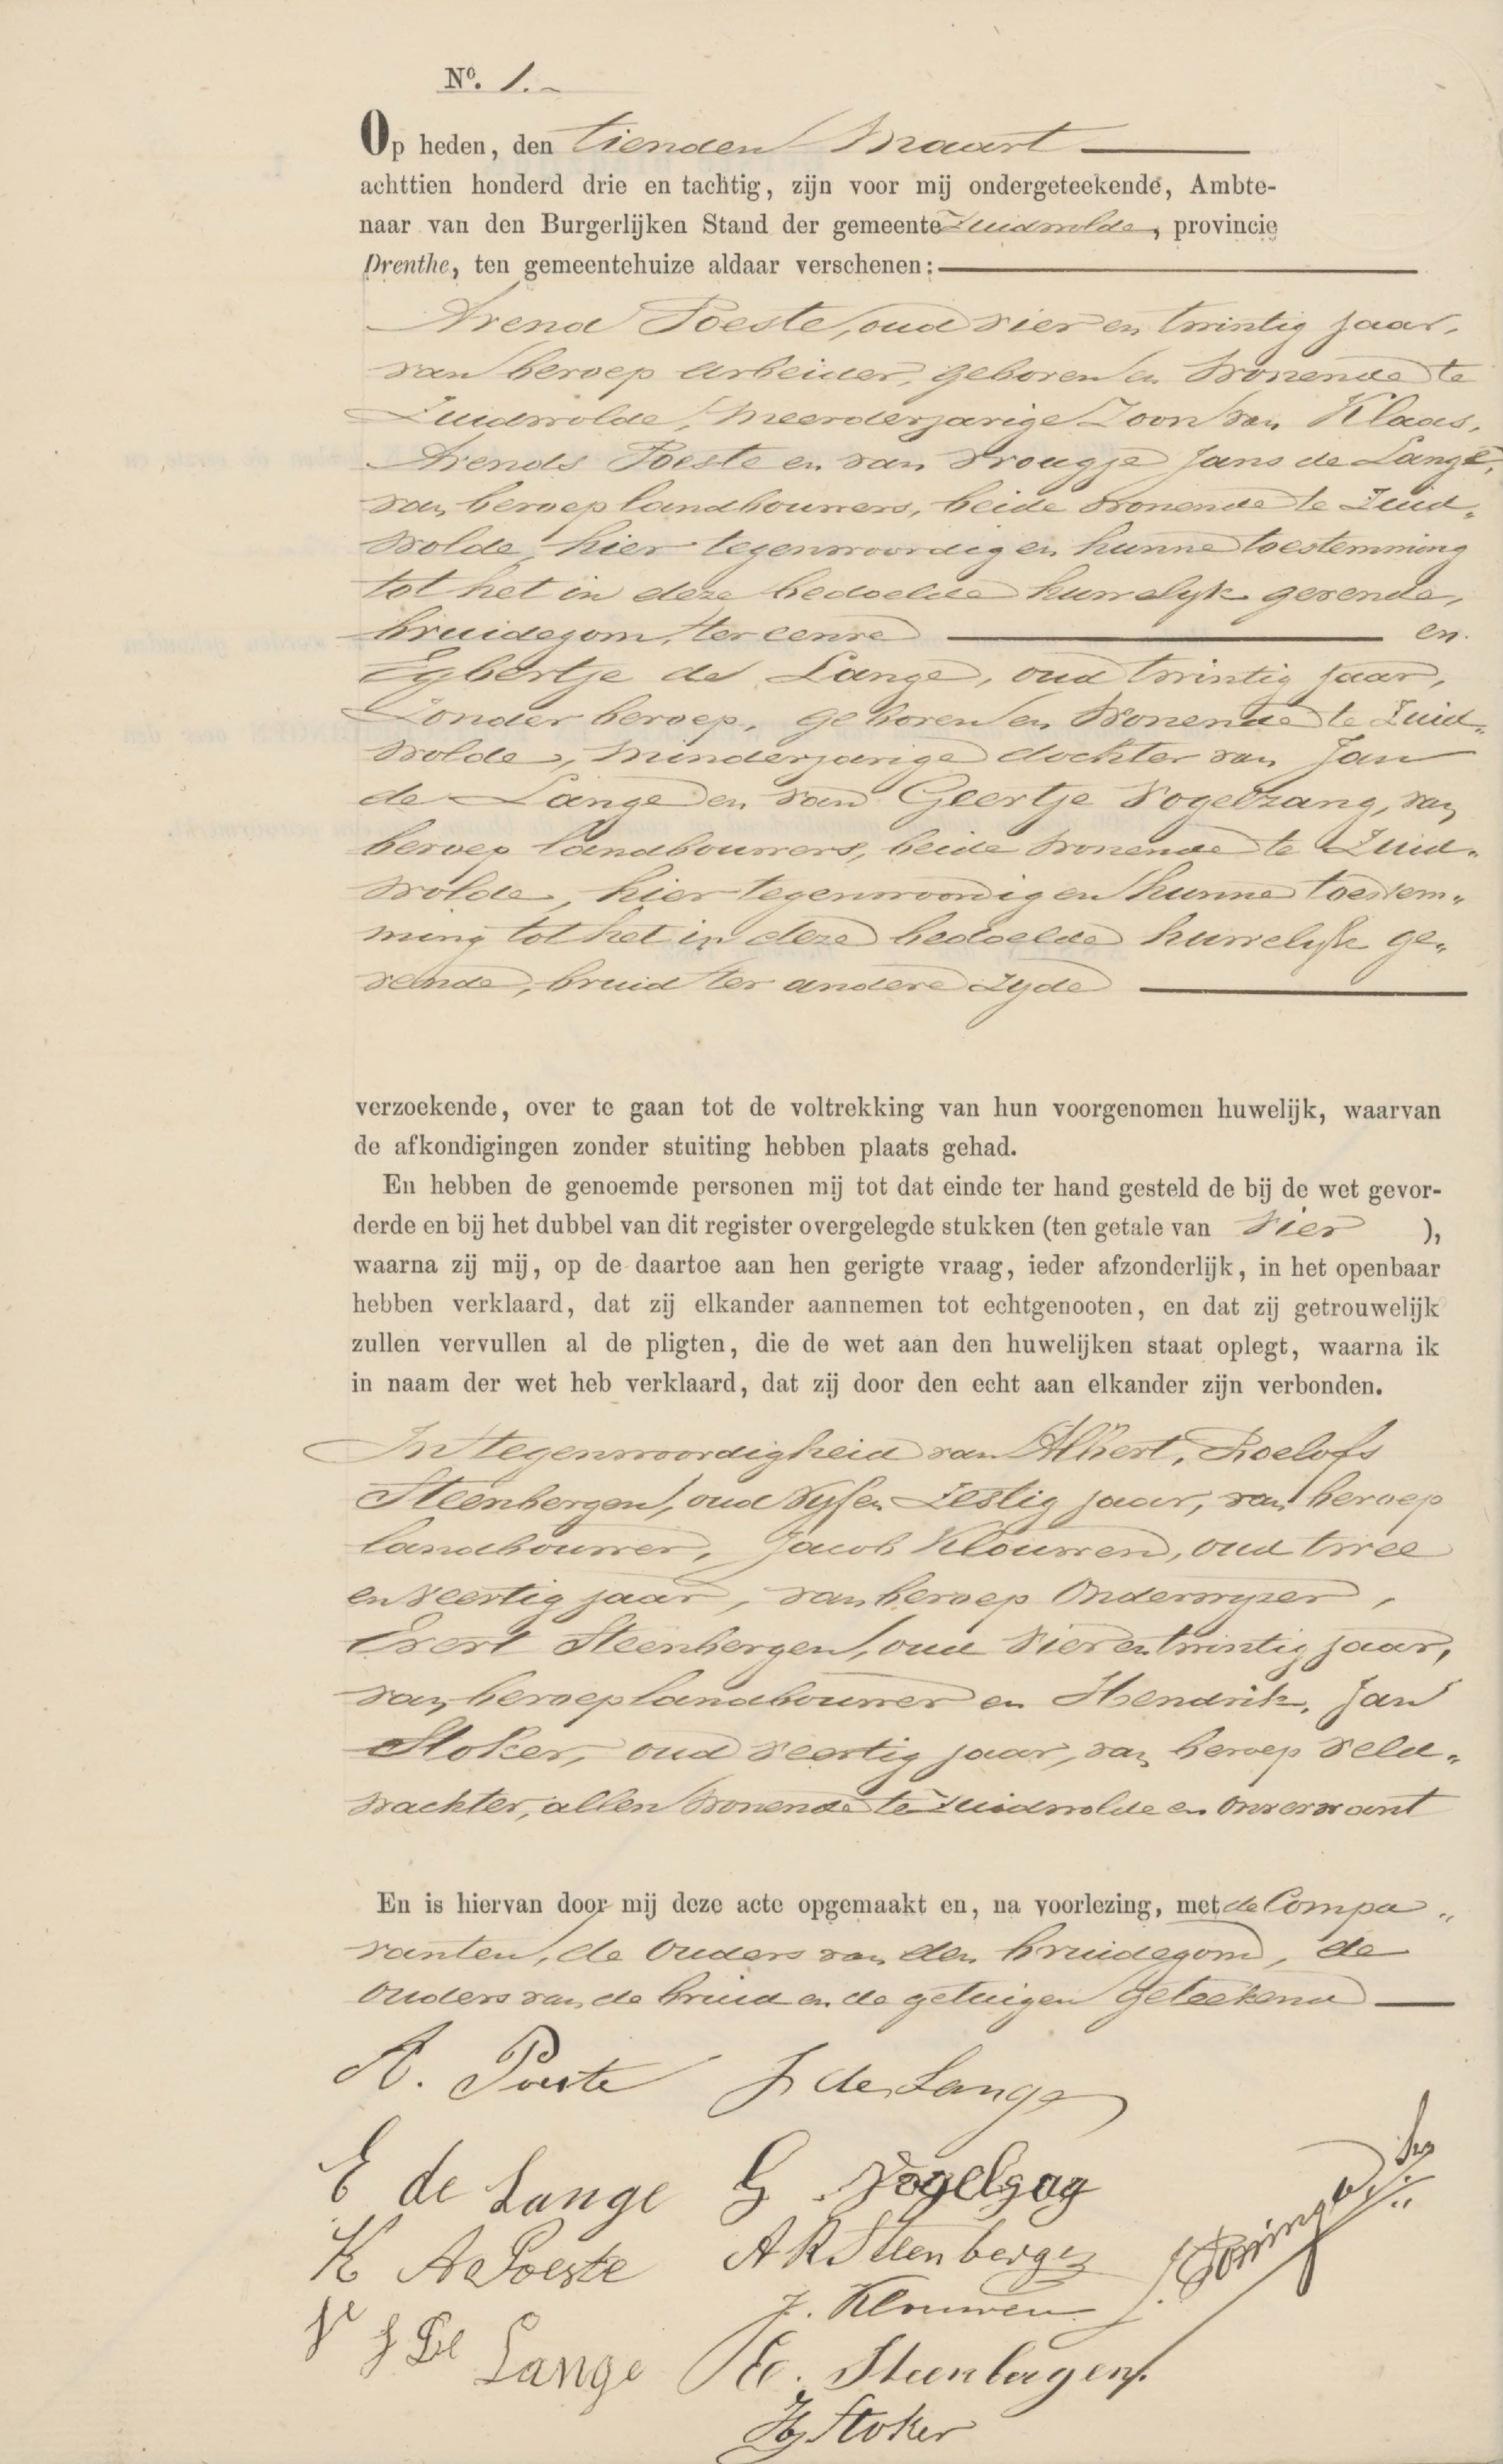 No. 1.-
Op heden, den tienden Maart
achttien honderd drie en tachtig, zijn voor mij ondergeteekende, Ambte-
naar van den Burgerlijken Stand der gemeente Zuidwolde, provincie
Drenthe, ten gemeentehuize aldaar verschenen:
Arend Poeste, oud vier en twintig jaar,
van beroep arbeider, geboren en wonende te
Zuidwolde, meerderjarige Zoon van Klaas,
Arends Poeste en van Vrougje Jans de Lange,
van beroep landbouwers, beide wonende te Zuid„
wolde, hier tegenwoordig en hunne toestemming
tot het in deze bedoelde huwelyk gevende,
bruidegom, ter eenre en
Egbertje de Lange, oud twintig jaar,
Zonder beroep, geboren en wonende te Zuid„
wolde, minderjarige dochter van Jan
de Lange en van Geertje Vogelzang, van
beroep landbouwers, beide wonende te Zuid„
wolde, hier tegenwoordig en hunne toestem„
ming tot het in deze bedoelde huwelyk ge„
vende, bruid ter andere Zyde
verzoekende, over te gaan tot de voltrekking van hun voorgenomen huwelijk, waarvan
de afkondigingen zonder stuiting hebben plaats gehad.
En hebben de genoemde personen mij tot dat einde ter hand gesteld de bij de wet gevor-
derde en bij het dubbel van dit register overgelegde stukken (ten getale van Vier ),
waarna zij mij, op de daartoe aan hen gerigte vraag, ieder afzonderlijk, in het openbaar
hebben verklaard, dat zij elkander aannemen tot echtgenooten, en dat zij getrouwelijk
zullen vervullen al de pligten, die de wet aan den huwelijken staat oplegt, waarna ik
in naam der wet heb verklaard, dat zij door den echt aan elkander zijn verbonden.
In tegenwoordigheid van Albert, Roelofs
Steenbergen, oud Vyf en Zestig jaar, van beroep
landbouwer, Jacob Klouwen, oud twee
en Veertig jaar, van beroep Onderwyzer,
Evert Steenbergen, oud Vier en twintig jaar,
van beroep landbouwer en Hendrik, Jan
Stoker, oud veertig jaar, van beroep Veld„
wachter, allen wonende te Zuidwolde en Onverwant
En is hiervan door mij deze acte opgemaakt en, na voorlezing, met de Compa„
ranten, de Ouders van den bruidegom, de
Ouders van de bruid en de getuigen geteekend
A. Poeste J de Lange
E de Lange G Vogelzag
K A Poeste A R Steenbergen
V J De Lange J. Klouwen
E. Steenbergen
HJ Stoker